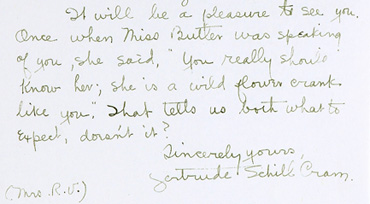 It will be a pleasure to see you.
Once when Miss Butler was speaking
of you, she said, "You really should
know her; she is a wild flower crank
like you." That tells us both what to
expect, doesn't it?
Sincerely yours,
Gertrude Schill Cram.
(Mrs. R.V.)